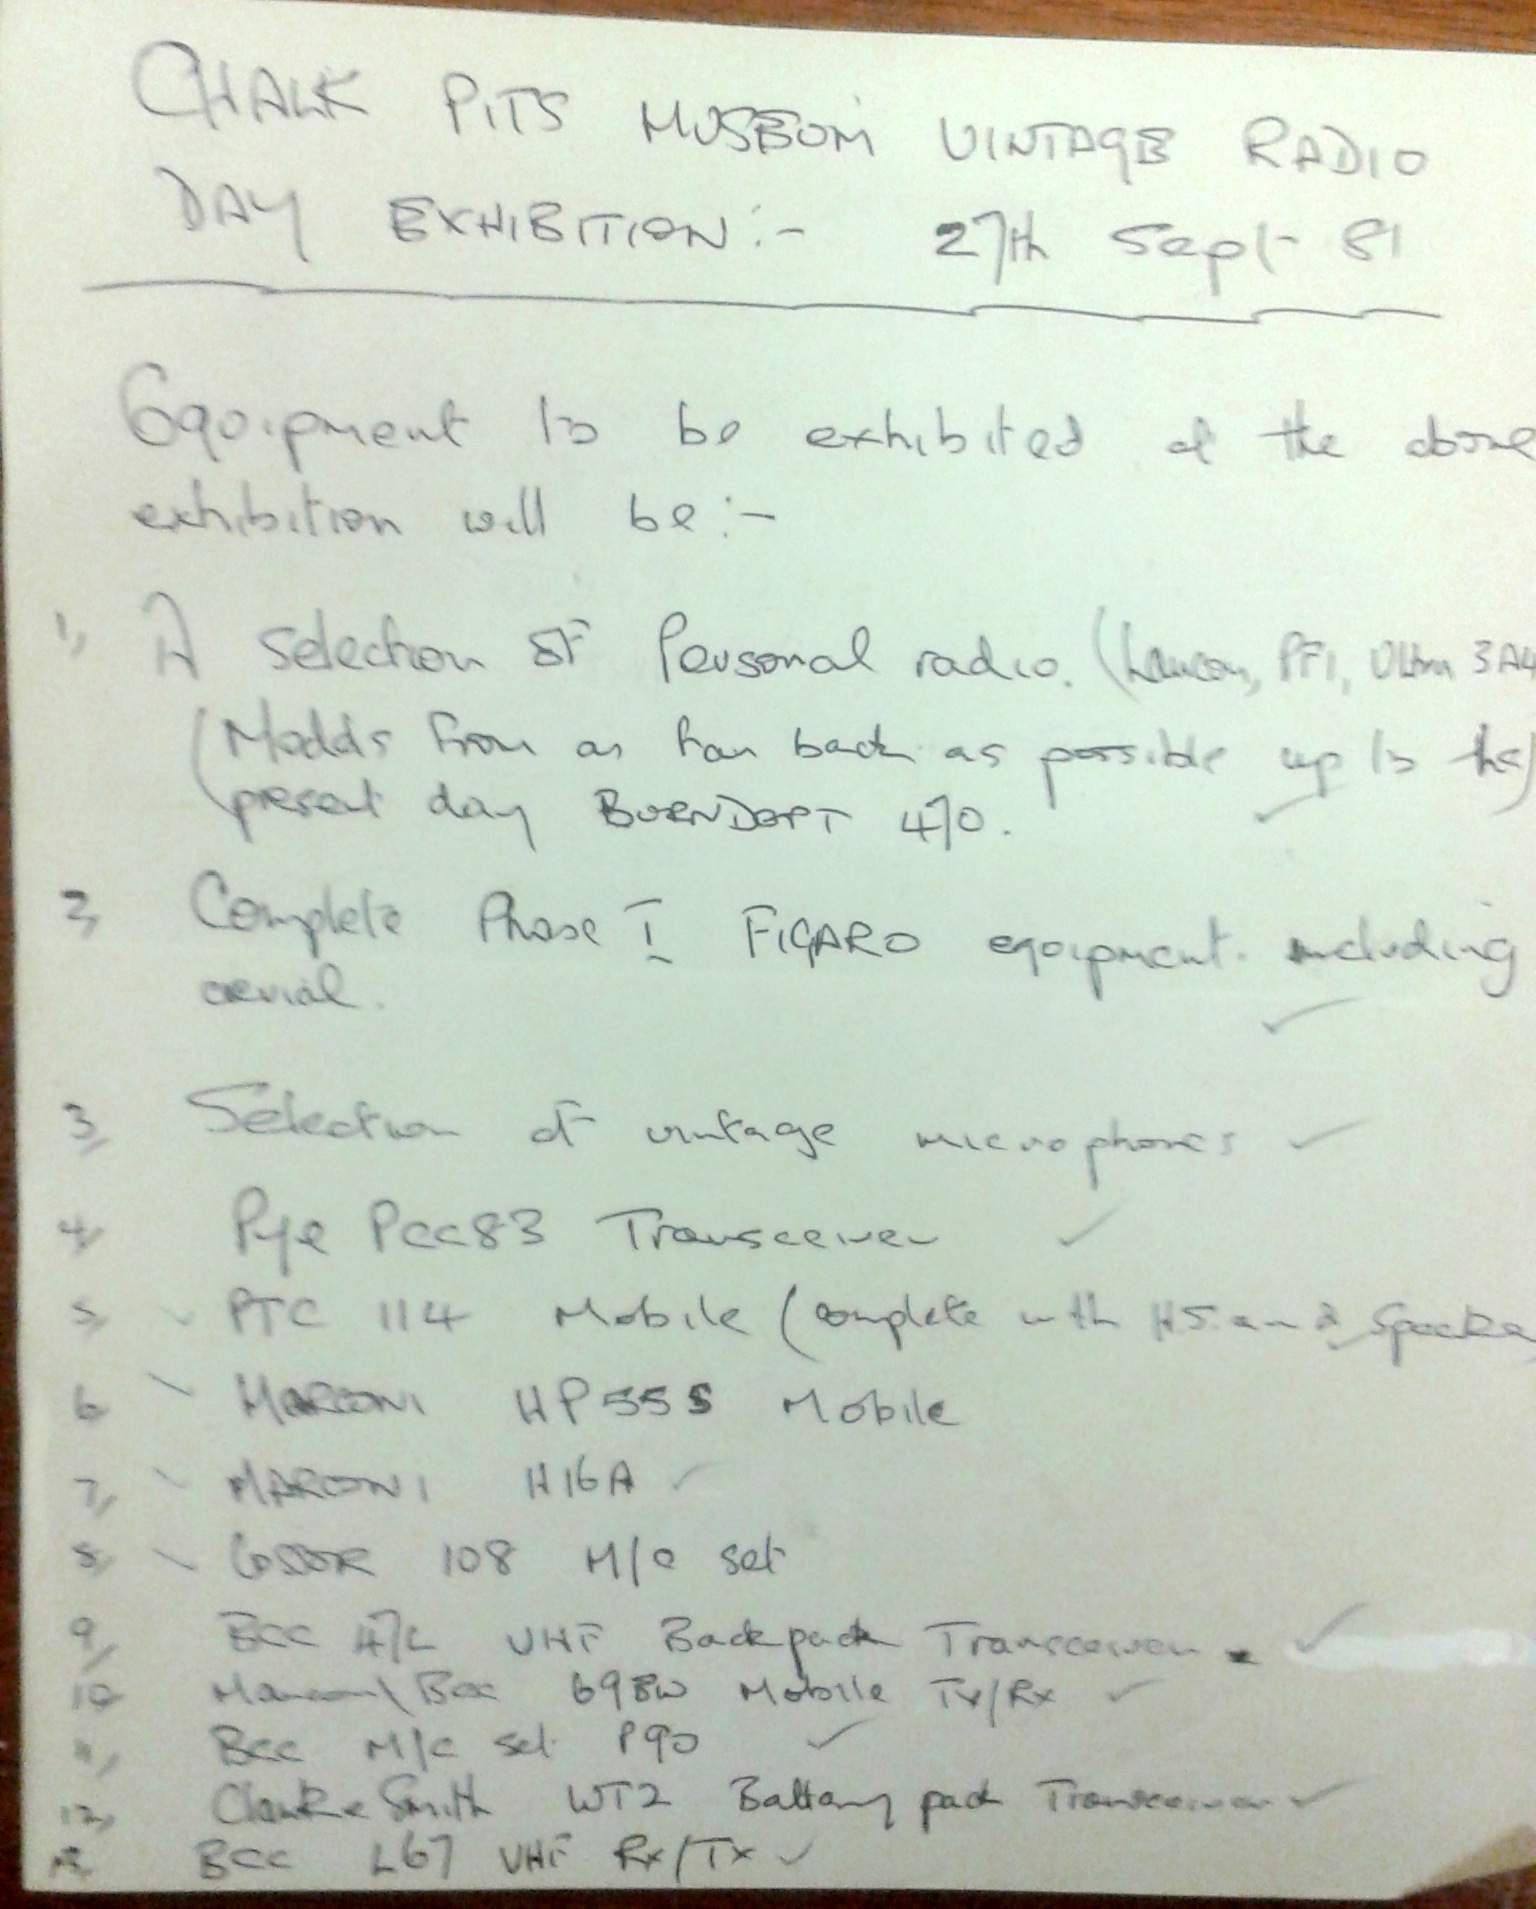 CHALK PITS MUSEUM VINTAGE RADIO
DAY EXHIBITION:- 27th Sept 81
Equipment to be exhibited at the above
exhibition will be:-
1, A selection of Personal radio. (Lancon, PF1, Ultra 3A4
(Models from as far back as possible up to the)
(present day BURNDEPT 470.
2, Complete Phase I FIGARO equipment. including
aerial.
3, Selection of vintage microphones
4, Pye PCC83 Transceiver
5, PTC 114 Mobile (complete with H.S. and Speaker
6, MARCONI HP555 Mobile
7, MARCONI H16A
8, COSSOR 108 M/C set
9, BCC 47L VHF Backpack Transceiver
10 Marconi\BCC 69BW Mobile Tx/Rx
11, BCC M/C set P90
12, Clarke & Smith WT2 Battery pack Transceiver
BCC L67 VHF Rx/Tx